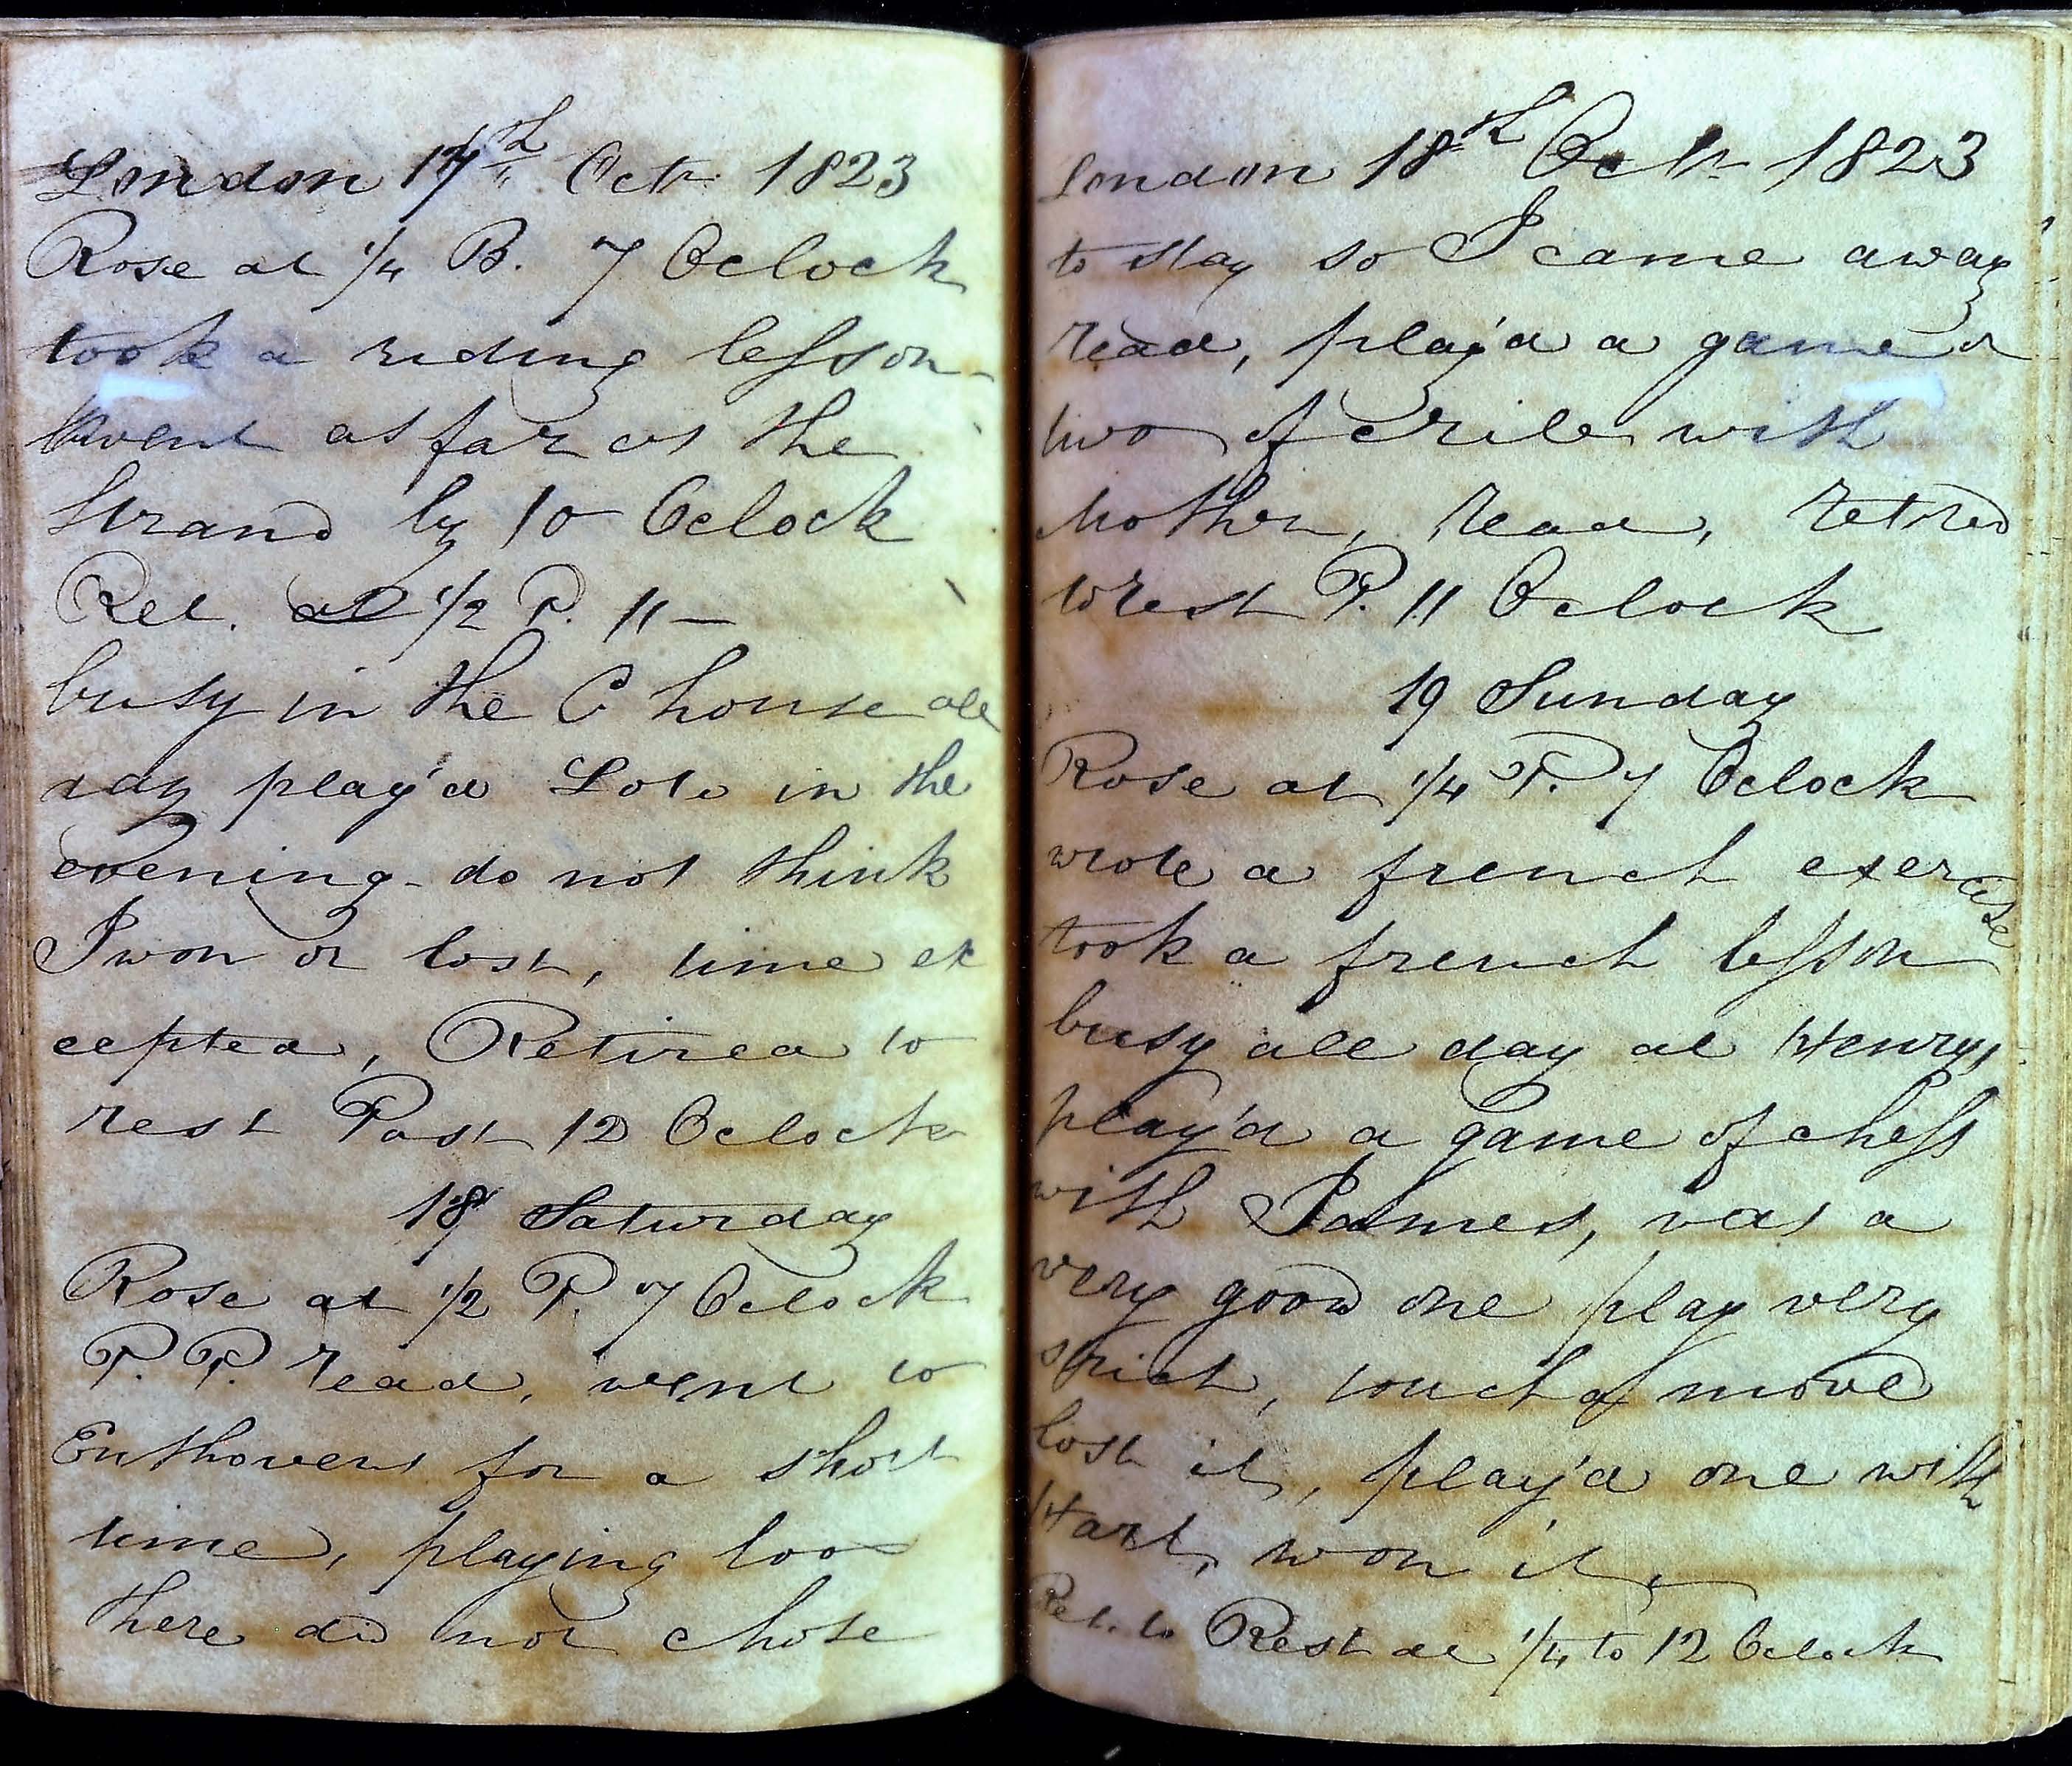 London 17th Octr 1823
Rose at 1/4 B. 7 Oclock
took a riding lesson
went as far as the
Strand by 10 Oclock
Ret. at 1/2 P. 11 –
busy in the C house all
day play'd Loto in the
evening - do not think
I won or lost, time ex
cepted, Retired to
rest Past 12 Oclock
18 Saturday
Rose at 1/2 P. 7 Oclock
P. P. read, went to
Enthovens for a short
time, playing loo
there did not chose
London 18th Octr 1823
to stay so I came away
read, play'd a game or
two of crib with
Mother, read, retired
to rest P. 11 Oclock
19 Sunday
Rose at 1/4 P. 7 Oclock
wrote a french exercise
took a french lesson
busy all day at Henrys,
play'd a game of chess
with James, was a
very good one play very
strict, touch & move
lost it, play'd one with
Hart, won it,
Ret. to Rest at 1/4 to 12 Oclock